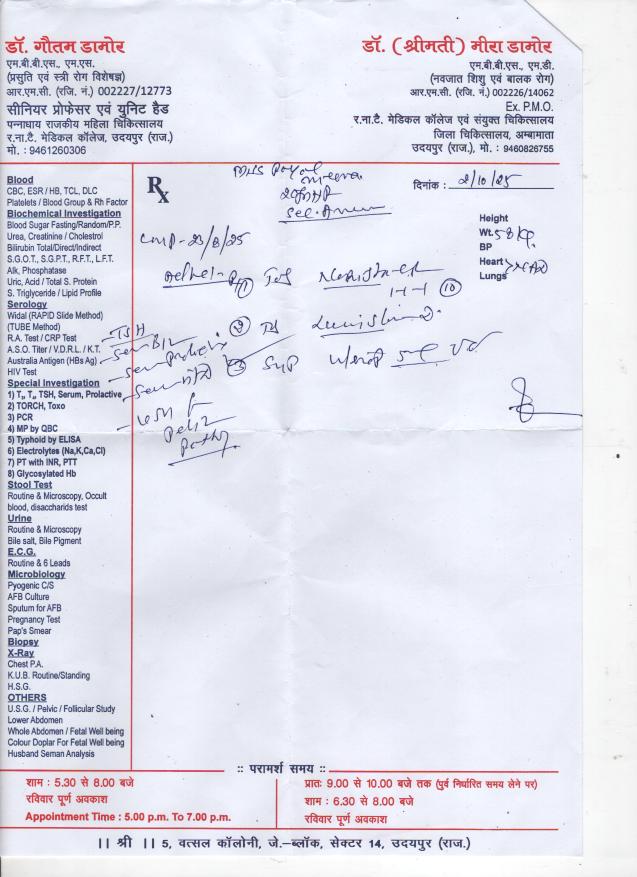 डॉ. गौतम डामोर
एम.बी.बी.एस., एम.एस.
(प्रसुति एवं स्त्री रोग विशेषज्ञ)
आर.एम.सी. (रजि. नं.) 002227/12773
सीनियर प्रोफेसर एवं युनिट हैड
पन्नाधाय राजकीय महिला चिकित्सालय
र.ना.टै. मेडिकल कॉलेज, उदयपुर (राज.)
मो. : 9461260306
डॉ. (श्रीमती) मीरा डामोर
एम.बी.बी.एस., एम.डी.
(नवजात शिशु एवं बालक रोग)
आर.एम.सी. (रजि. नं.) 002226/14062
Ex. P.M.O.
र.ना.टै. मेडिकल कॉलेज एवं संयुक्त चिकित्सालय
जिला चिकित्सालय, अम्बामाता
उदयपुर (राज.), मो. : 9460826755
Blood
CBC, ESR / HB, TCL, DLC
Platelets / Blood Group & Rh Factor
Biochemical Investigation
Blood Sugar Fasting/Random/P.P.
Urea, Creatinine / Cholestrol
Bilirubin Total/Direct/Indirect
S.G.O.T., S.G.P.T., R.F.T., L.F.T.
Alk, Phosphatase
Uric, Acid / Total S. Protein
S. Triglyceride / Lipid Profile
Serology
Widal (RAPID Slide Method)
(TUBE Method)
R.A. Test / CRP Test
A.S.O. Titer / V.D.R.L. / K.T.
Australia Antigen (HBs Ag)
HIV Test
Special Investigation
1) T₃, T₄, TSH, Serum, Prolactive
2) TORCH, Toxo
3) PCR
4) MP by QBC
5) Typhoid by ELISA
6) Electrolytes (Na,K,Ca,Cl)
7) PT with INR, PTT
8) Glycosylated Hb
Stool Test
Routine & Microscopy, Occult
blood, disaccharids test
Urine
Routine & Microscopy
Bile salt, Bile Pigment
E.C.G.
Routine & 6 Leads
Microbiology
Pyogenic C/S
AFB Culture
Sputum for AFB
Pregnancy Test
Pap's Smear
Biopsy
X-Ray
Chest P.A.
K.U.B. Routine/Standing
H.S.G.
OTHERS
U.S.G. / Pelvic / Follicular Study
Lower Abdomen
Whole Abdomen / Fetal Well being
Colour Doplar For Fetal Well being
Husband Seman Analysis
Rx
Payal
Meena
दिनांक : 2/10/25
Height
Wt. 58 kg
BP
Heart
Lungs NAD
LMP - 23/8/25
TSH
Syp
:: परामर्श समय ::
शाम : 5.30 से 8.00 बजे
रविवार पूर्ण अवकाश
Appointment Time : 5.00 p.m. To 7.00 p.m.
प्रातः 9.00 से 10.00 बजे तक (पुर्व निर्धारित समय लेने पर)
शाम : 6.30 से 8.00 बजे
रविवार पूर्ण अवकाश
।। श्री ।। 5, वत्सल कॉलोनी, जे.–ब्लॉक, सेक्टर 14, उदयपुर (राज.)